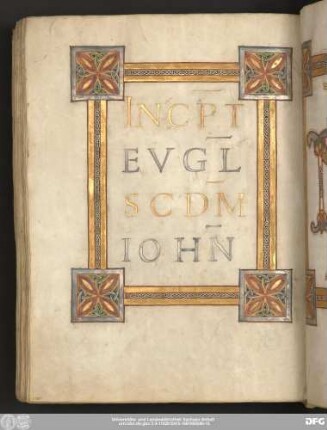 INCPT
EVGL
SCDM
IOHN
Universitäts- und Landesbibliothek Sachsen-Anhalt
DFG